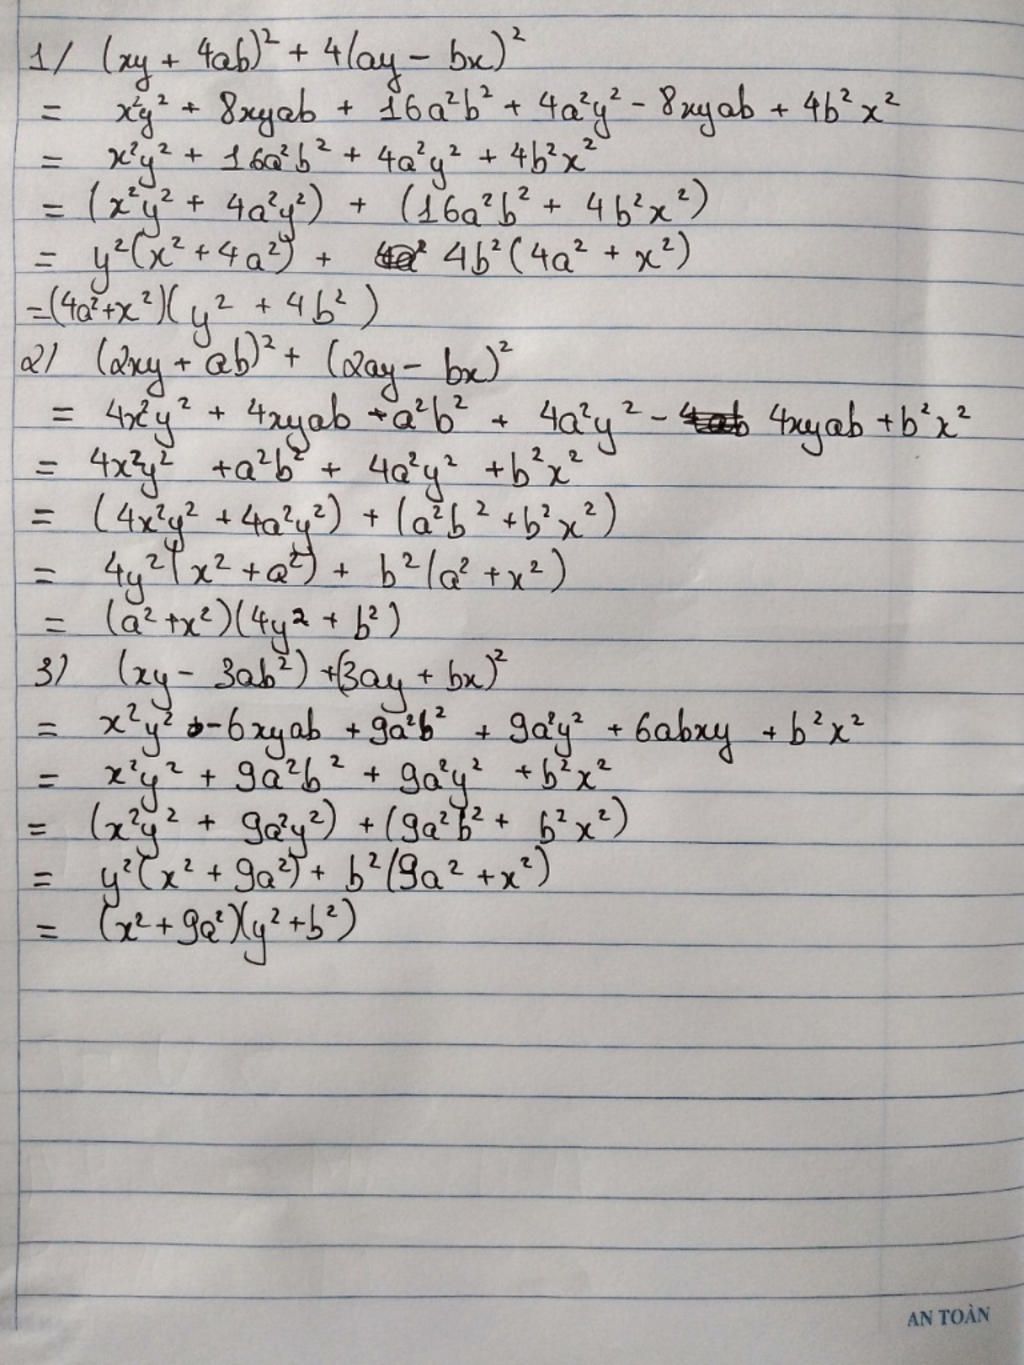 1/ (xy + 4ab)² + 4(ay − bx)²
= x²y² + 8xyab + 16a²b² + 4a²y² − 8xyab + 4b²x²
= x²y² + 16a²b² + 4a²y² + 4b²x²
= (x²y² + 4a²y²) + (16a²b² + 4b²x²)
= y²(x² + 4a²) + 4b²(4a² + x²)
=(4a²+x²)(y² + 4b²)
2) (2xy + ab)² + (2ay − bx)²
= 4x²y² + 4xyab + a²b² + 4a²y² − 4xyab + b²x²
= 4x²y² + a²b² + 4a²y² + b²x²
= (4x²y² + 4a²y²) + (a²b² + b²x²)
= 4y²(x² + a²) + b²(a² + x²)
= (a² + x²)(4y² + b²)
3) (xy − 3ab²) + (3ay + bx)²
= x²y² − 6xyab + 9a²b² + 9a²y² + 6abxy + b²x²
= x²y² + 9a²b² + 9a²y² + b²x²
= (x²y² + 9a²y²) + (9a²b² + b²x²)
= y²(x² + 9a²) + b²(9a² + x²)
= (x² + 9a²)(y² + b²)
AN TOÀN